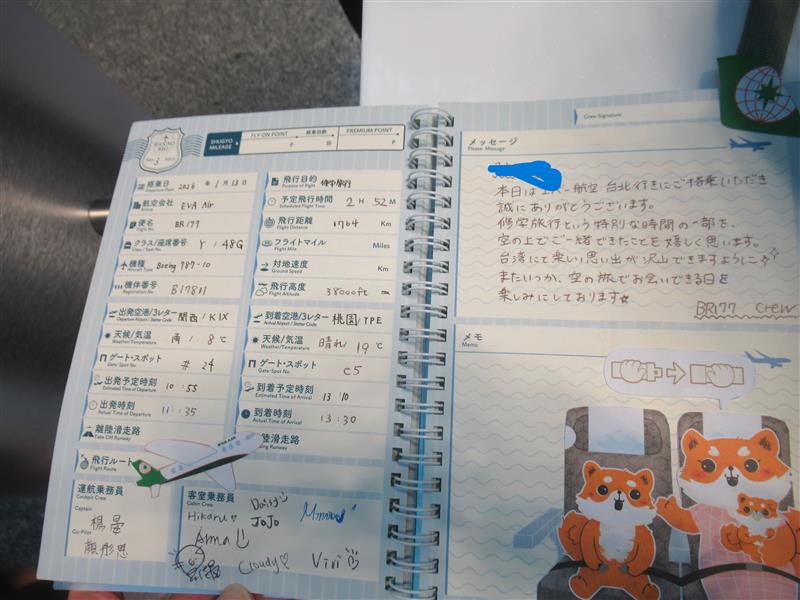 SHUGYO MILEAGE
FLY ON POINT
搭乗回数
PREMIUM POINT
P 回 P
NO. 3
搭乗日 2026 年 1月 13日
Departure Date
航空会社 EVA Air
Airline
便名 BR177
Flight No.
クラス/座席番号 Y / 48G
Class / Seat No.
機種 Boeing 787-10
Aircraft Type
機体番号 B17811
Registration No.
出発空港/3レター 関西 / KIX
Departure Airport / 3letter Code
天候/気温 雨 / 8 ℃
Weather/Temperature
ゲート・スポット # 24
Gate・Spot No.
出発予定時刻 10:55
Estimated Time of Departure
出発時刻 11:35
Actual Time of Departure
離陸滑走路
Take Off Runway
飛行ルート
Flight Route
飛行目的 修学旅行
Purpose of Flight
予定飛行時間 2 H 52 M
Scheduled Flight Time
飛行距離 1764 Km
Flight Distance
フライトマイル Miles
Flight Mile
対地速度 Km
Ground Speed
飛行高度 38000ft m
Flight Altitude
到着空港/3レター 桃園 / TPE
Arrival Airport / 3letter Code
天候/気温 晴れ / 19 ℃
Weather/Temperature
ゲート・スポット C5
Gate・Spot No.
到着予定時刻 13:10
Estimated Time of Arrival
到着時刻 13:30
Actual Time of Arrival
着陸滑走路
EVA AIR
運航乗務員
Cockpit Crew
Captain
楊晏
Co-Pilot
顏彤恩
客室乗務員
Cabin Crew
Daisy
Hikaru JoJo
Anna
Cloudy Vivi
Crew Signature
メッセージ
Please Message
本日はエバー航空 台北行きにご搭乗いただき
誠にありがとうございます。
修学旅行という特別な時間の一部を、
空の上でご一緒できたことを嬉しく思います。
台湾にて楽しい思い出が沢山できますように☆
またいつか、空の旅でお会いできる日を
楽しみにしております☆
BR177 Crew
メモ
Memo